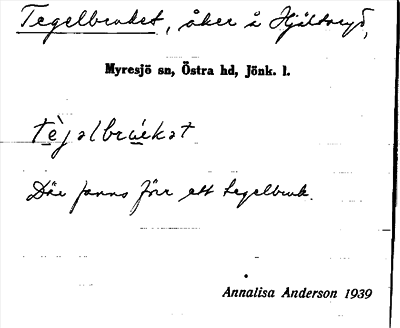 Tegelbruket, åker å Hjältaryd,
Myresjö sn, Östra hd, Jönk. l.
tègəlbrúekət
Där fanns förr ett tegelbruk.
Annalisa Anderson 1939